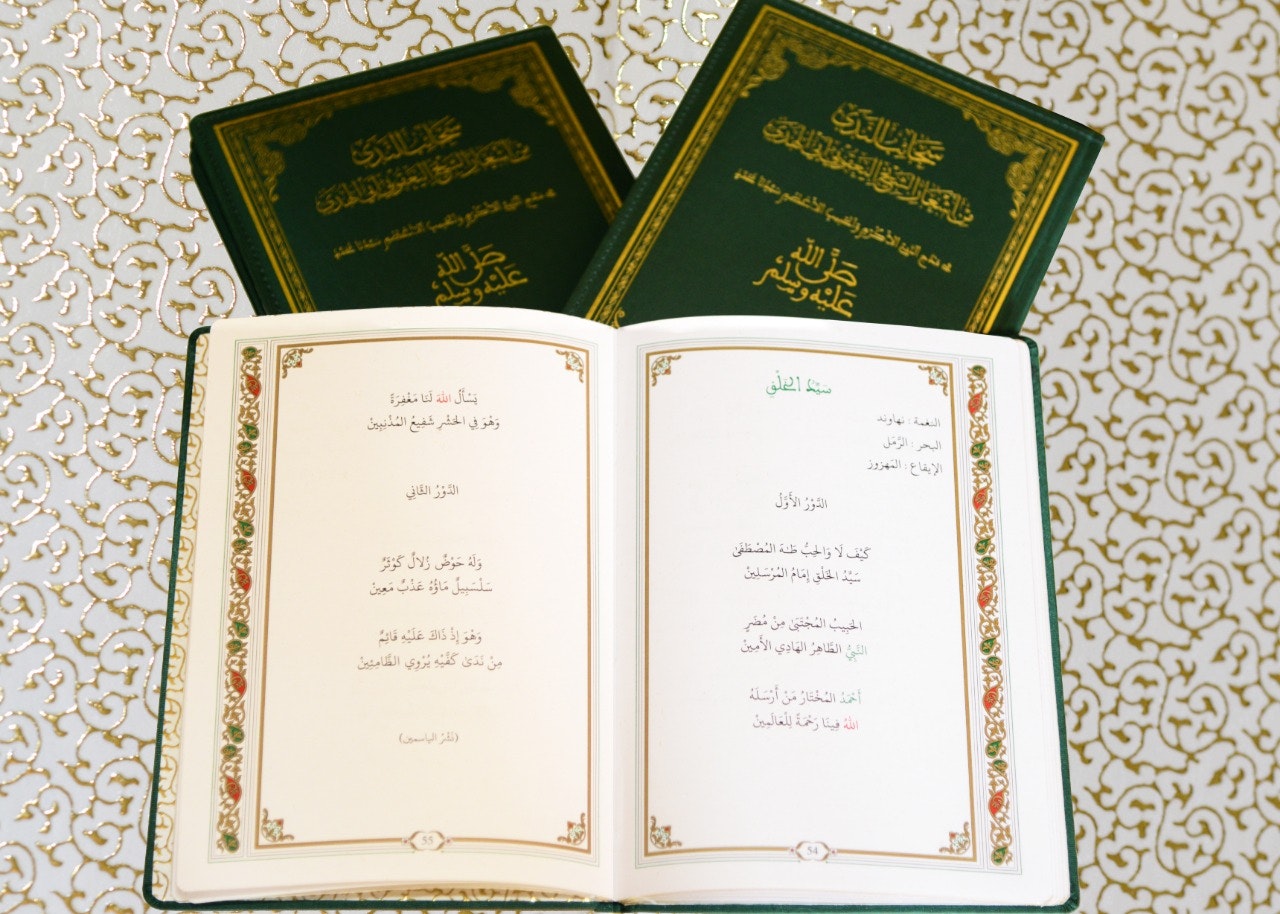 سَحَائِبُ النَّدَى
مِنْ أَشْعَارِ الشَّيْخِ اليَعْقُوبِيّ أَبِي الهُدَى
فِي مَدْحِ النَّبِيِّ الأَكْرَمِ وَالحَبِيبِ الأَعْظَمِ سَيِّدِنَا مُحَمَّدٍ
صَلَّى اللَّهُ
عَلَيْهِ وَسَلَّمَ
سَحَائِبُ النَّدَى
مِنْ أَشْعَارِ الشَّيْخِ اليَعْقُوبِيّ أَبِي الهُدَى
فِي مَدْحِ النَّبِيِّ الأَكْرَمِ وَالحَبِيبِ الأَعْظَمِ سَيِّدِنَا مُحَمَّدٍ
صَلَّى اللَّهُ
عَلَيْهِ وَسَلَّمَ
سَيِّدُ الخَلْقِ
النغمة : نهاوند
البحر : الرَّمَل
الإيقاع : المَهزوز
الدَّوْرُ الأَوَّلُ
كَيْفَ لَا وَالحِبُّ طَـٰهَ المُصْطَفَىٰ
سَيَّدُ الخَلْقِ إِمَامُ المُرْسَلِينْ
الحَبِيبُ المُجْتَبَىٰ مِنْ مُضَرٍ
النَّبِيُّ الطَّاهِرُ الهَادِي الأَمِينْ
أَحْمَدُ المُخْتَارُ مَنْ أَرْسَلَهُ
اللهُ فِينَا رَحْمَةً لِلْعَالَمِينْ
54
يَسْأَلُ اللهَ لَنَا مَغْفِرَةً
وَهْوَ فِي الحَشْرِ شَفِيعُ المُذْنِبِينْ
الدَّوْرُ الثَّانِي
وَلَهُ حَوْضٌ زُلَالٌ كَوْثَرٌ
سَلْسَبِيلٌ مَاؤُهُ عَذْبٌ مَعِينْ
وَهْوَ إِذْ ذَاكَ عَلَيْهِ قَائِمٌ
مِنْ نَدَىٰ كَفَّيْهِ يُرْوِي الظَّامِئِينْ
(نَشْرُ الياسمين)
55